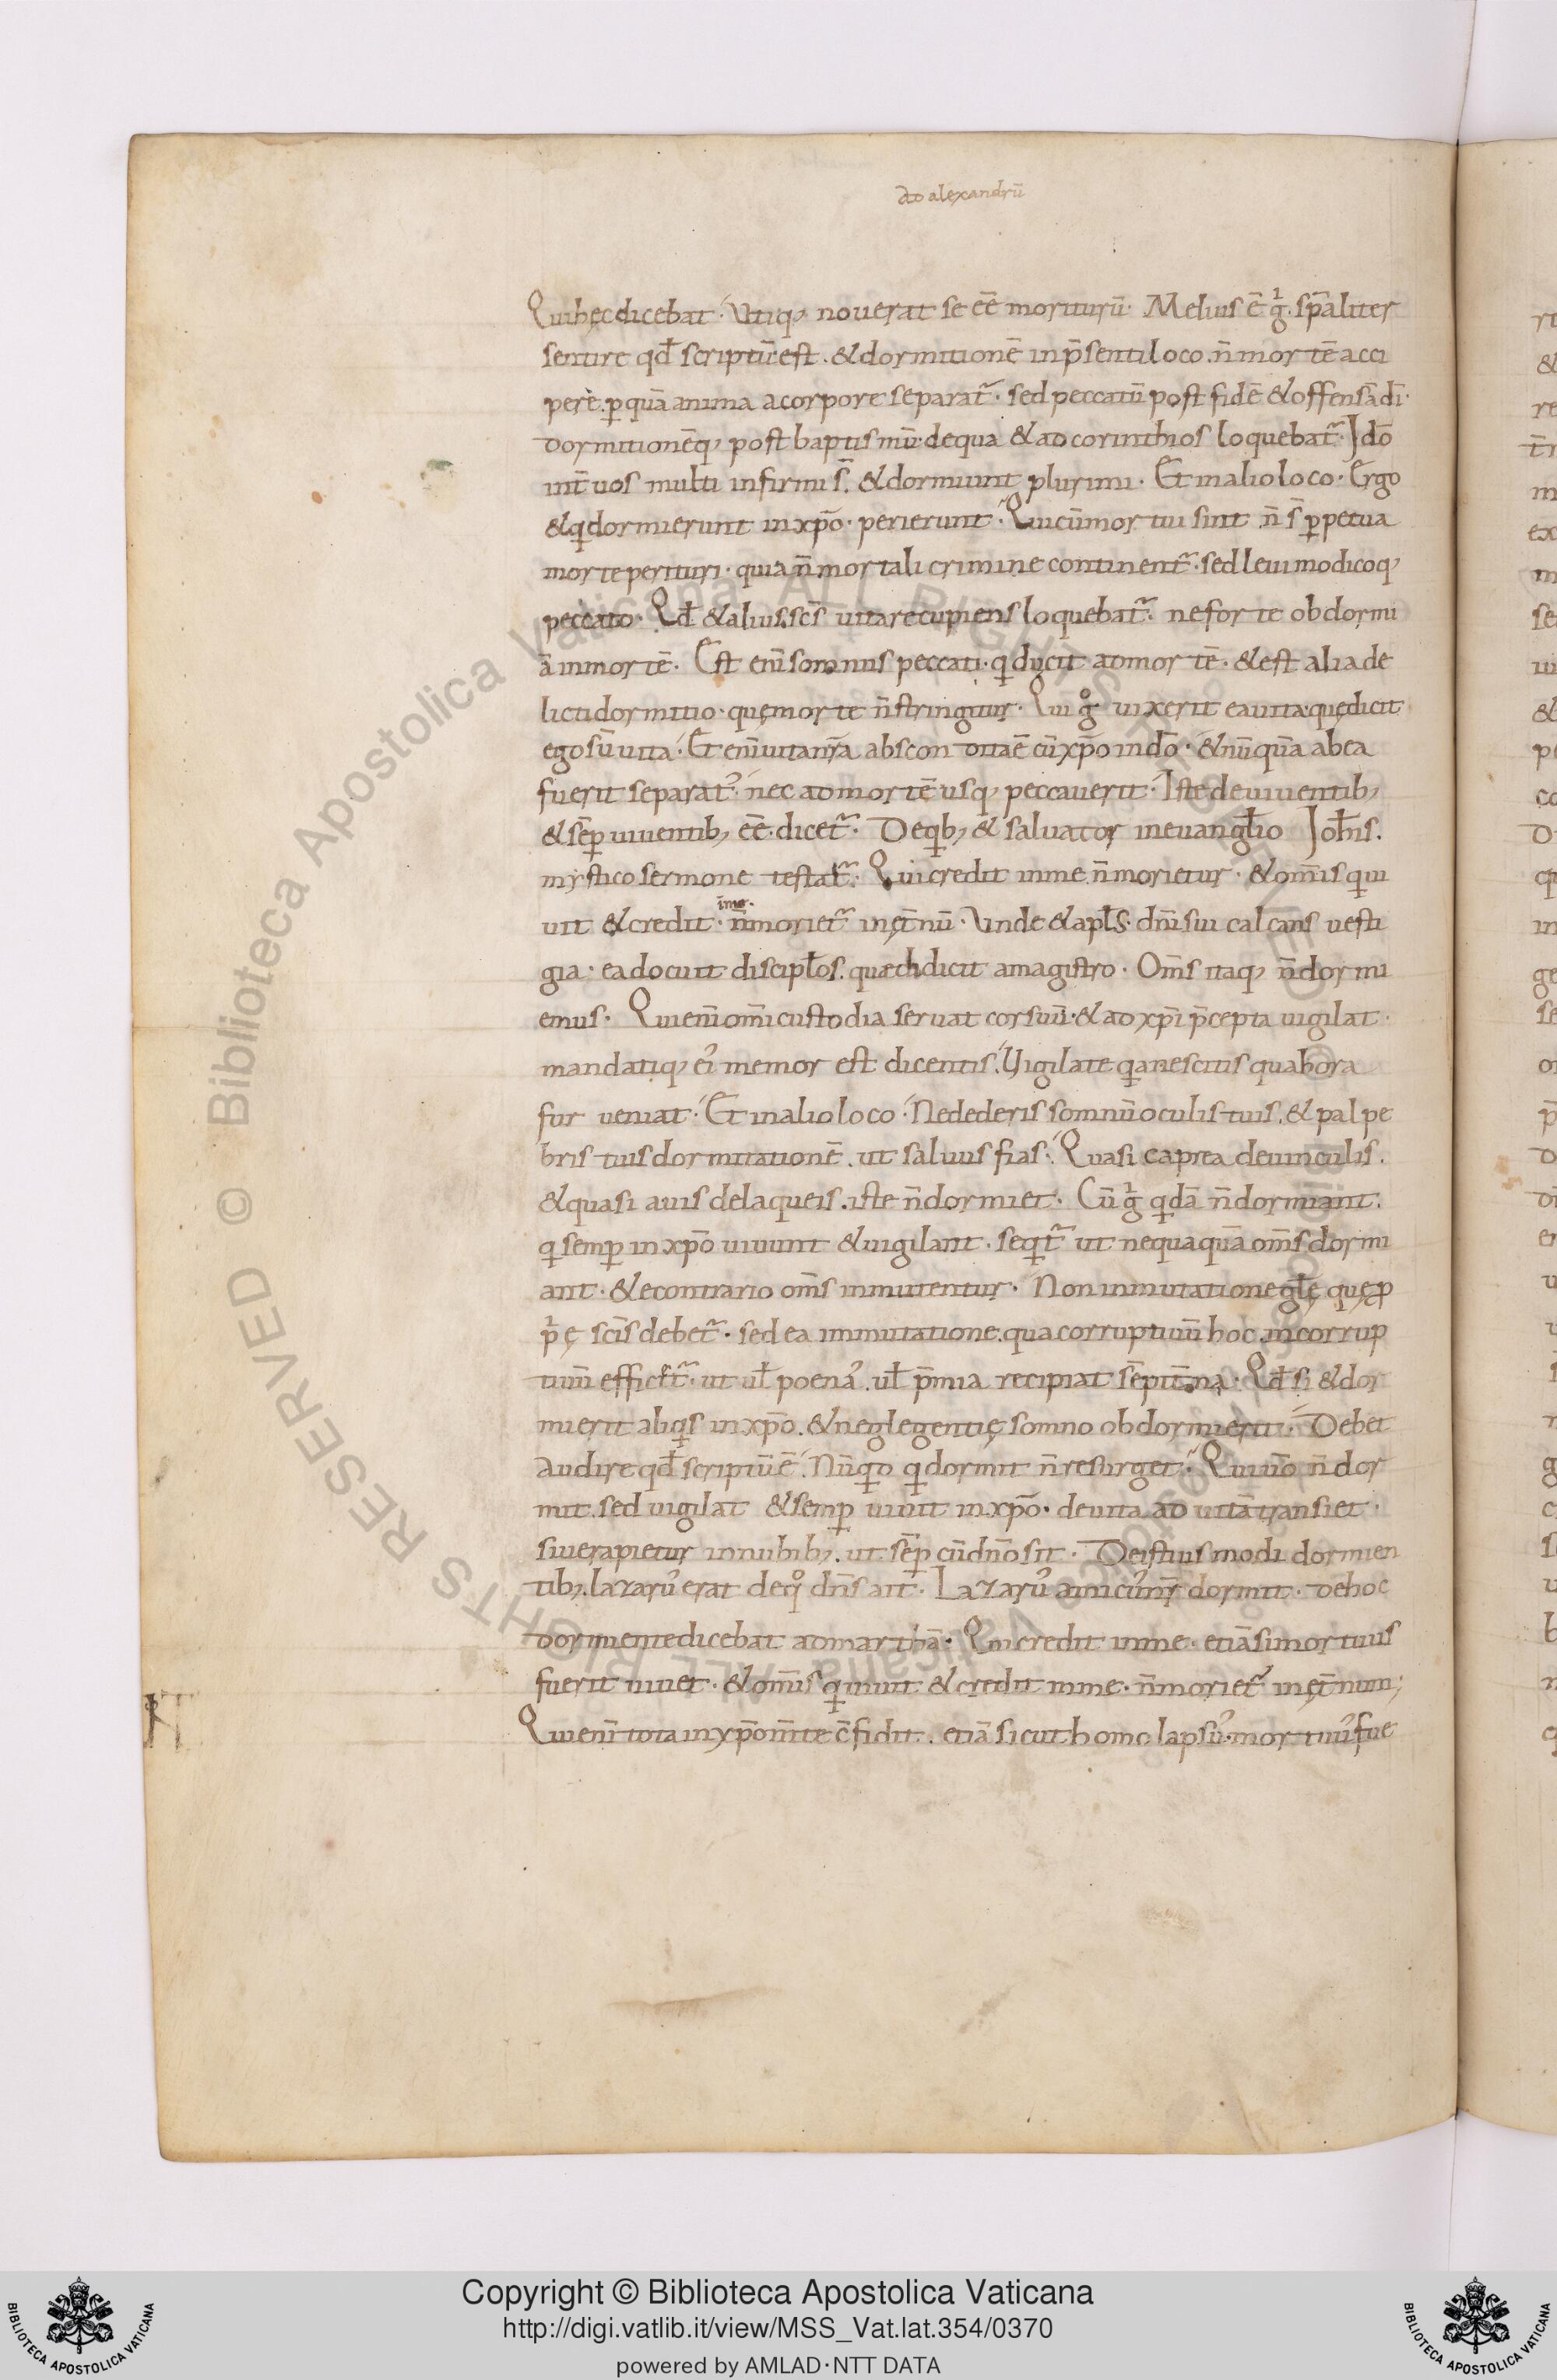 ad alexandrū
Qui hęc dicebat· Utiq; noverat se eē̄ moriturū· Melius ē gͥ· sp̄aliter
sentire qd̄ scriptū est. & dormitionē in p̄senti loco. n̄ mortē acci
pere. ꝑ quā anima a corpore separat᷑· sed peccatū post fidē & offensā dī·
dormitionēq; post baptismū· de qua & ad corinthios loquebat᷑· Idō
int̄ vos multi infirmi s̄. & dormiunt plurimi· Et in alio loco· Ergo
& qͥ dormierunt in xp̄o· perierunt· Qui cū mortui sint n̄ s̄ ꝑpetua
morte perituri· quia n̄ mortali crimine continent᷑· sed levi modicoq;
peccato· Qd̄ & alius sc̄s vitare cupiens loquebat᷑· ne forte obdormi
ā in mortē· Est enī somnus peccati· qͥ ducit ad mortē· & est alia de
licti dormitio· quę morte n̄ stringitur· Qui gͦ vixerit ea vita· quę dicit
ego sū vita· Et enī vita nr̄a abscondita ē cū xp̄o in dō· & nūquā ab ea
fuerit separat᾿· nec ad mortē usq; peccaverit· Iste de viventib;
& sēp viventib; eē̄· dicet᷑· De qͥb; & salvator in evangl̄io Ioh̄is.
mystico sermone testat᷑· Qui credit in me n̄ morietur· & om̄is qͥ vi
vit & credit· in me· n̄ moriet᷑ in ęt̄nū· Unde & apl̄s· dn̄i sui calcans vesti
gia· ea docuit discipl̄os. quæ didicit a magistro· Om̄s itaq; n̄ dormi
emus· Qui enī om̄i custodia servat cor suū· & ad xp̄i p̄cepta vigilat·
mandatiq; ei᾿ memor est dicentis· Vigilate qͥa nescitis qua hora
fur veniat· Et in alio loco· Ne dederis somnū oculis tuis. & palpe
bris tuis dormitationē. ut salvus fias· Quasi caprea de vinculis.
& quasi avis de laqueis. iste n̄ dormiet· Cū gͥ qͥdā n̄ dormiant.
qͥ semꝑ in xp̄o vivunt & vigilant· seqͥt᷑ ut nequaquā om̄s dormi
ant· & e contrario om̄s inmutentur· Non inmutatione gl̄ę quę p
pͥę sc̄is debet᷑· sed ea immutatione. qua corruptivū hoc. incorrup
tivū efficit᷑· ut vl̄ poena᾿. vl̄ p̄mia recipiat sēpit̄na· Qd̄ si & dor
mierit aliqͥs in xp̄o. & neglegentię somno obdormierit· Debet
audire qd̄ scriptū ē· Nūqͥd qͥ dormit n̄ resurget· Qui vō n̄ dor
mit. sed vigilat & semꝑ vivit in xp̄o· de vita ad vitā transiet·
sive rapietur in nubib;. ut sēp cū dn̄o sit· De istius modi dormien
tib;. lazaru᾿ erat de qͦ dn̄s ait· Lazaru᾿ amicu᾿ nr̄ dormit· De hoc
dormiente dicebat ad marthā· Qui credit in me· etiā si mortuus
fuerit vivet· & om̄is qͥ vivit & credit in me· n̄ moriet᷑ in ęt̄num;
Qui enī tota in xp̄o m̄te c̄fidit. etiā si cut homo lapsu᾿· mortuu᾿ fue
Copyright © Biblioteca Apostolica Vaticana
http://digi.vatlib.it/view/MSS_Vat.lat.354/0370
powered by AMLAD·NTT DATA